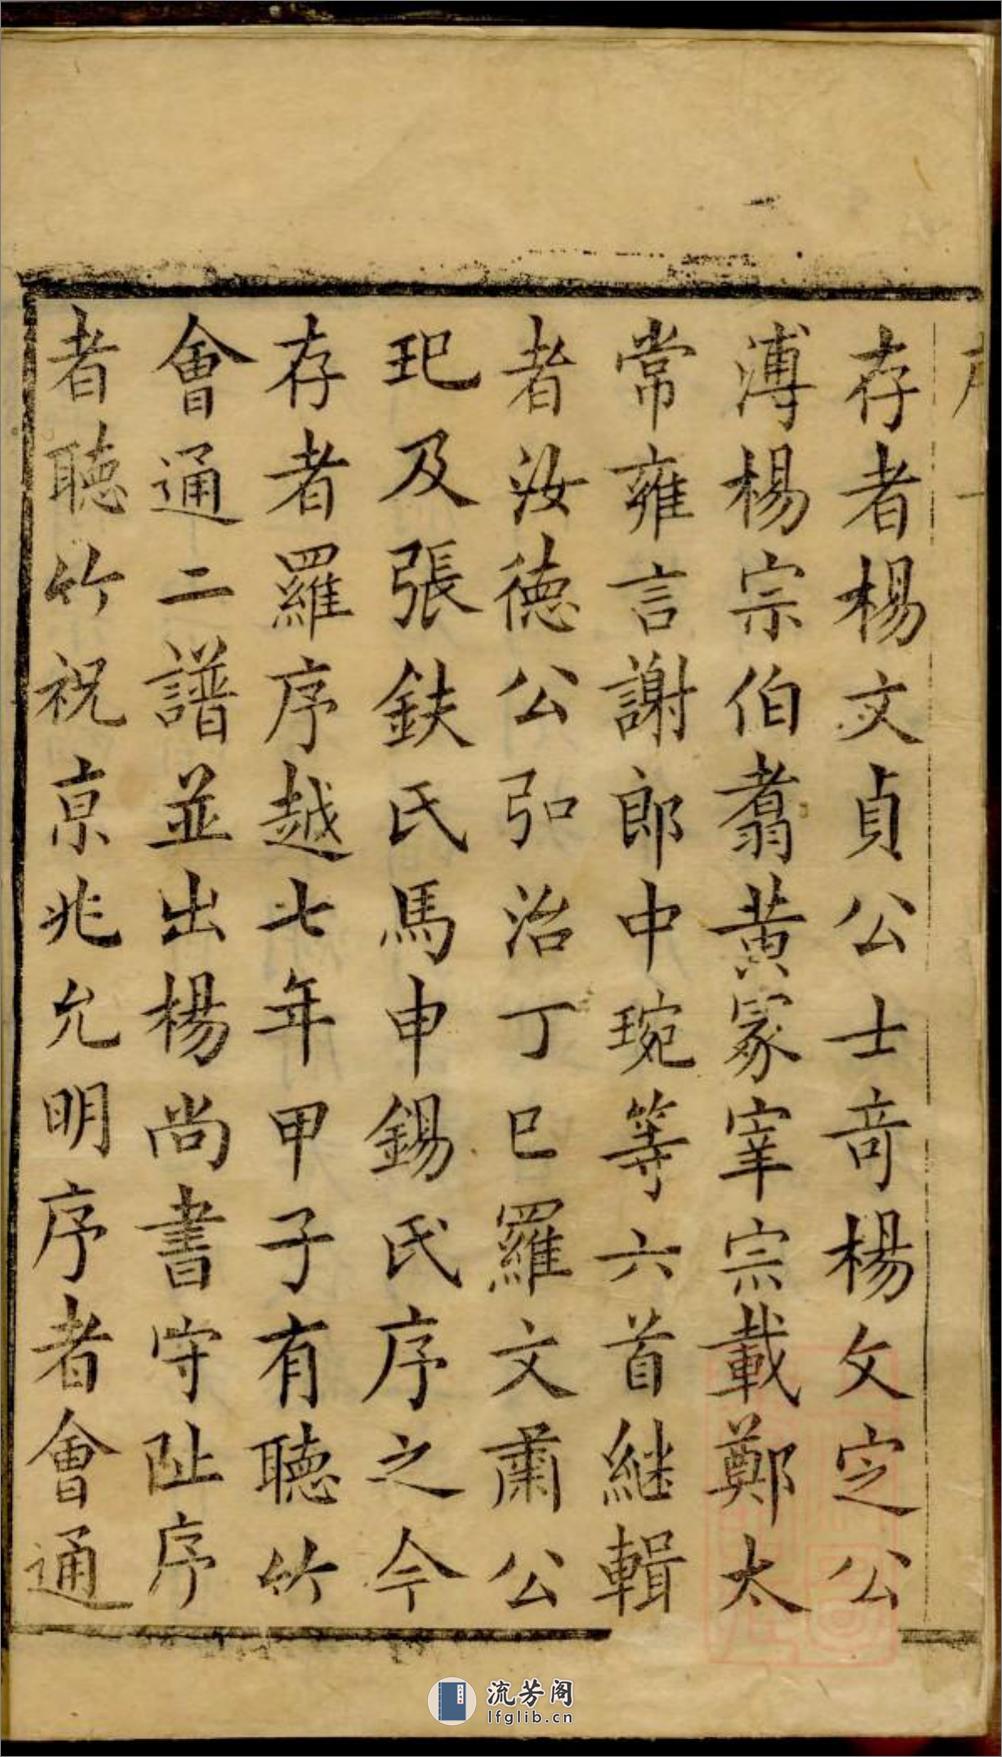 存者楊文貞公士竒楊文定公
溥楊宗伯翥黄冢宰宗載鄭太
常雍言謝郎中琬等六首継輯
者汝德公弘治丁巳羅文肅公
玘及張鈇氏馬申錫氏序之今
存者羅序越七年甲子有聽竹
會通二譜並出楊尚書守阯序
者聽竹祝京兆允明序者會通
流芳阁
lfglib.cn